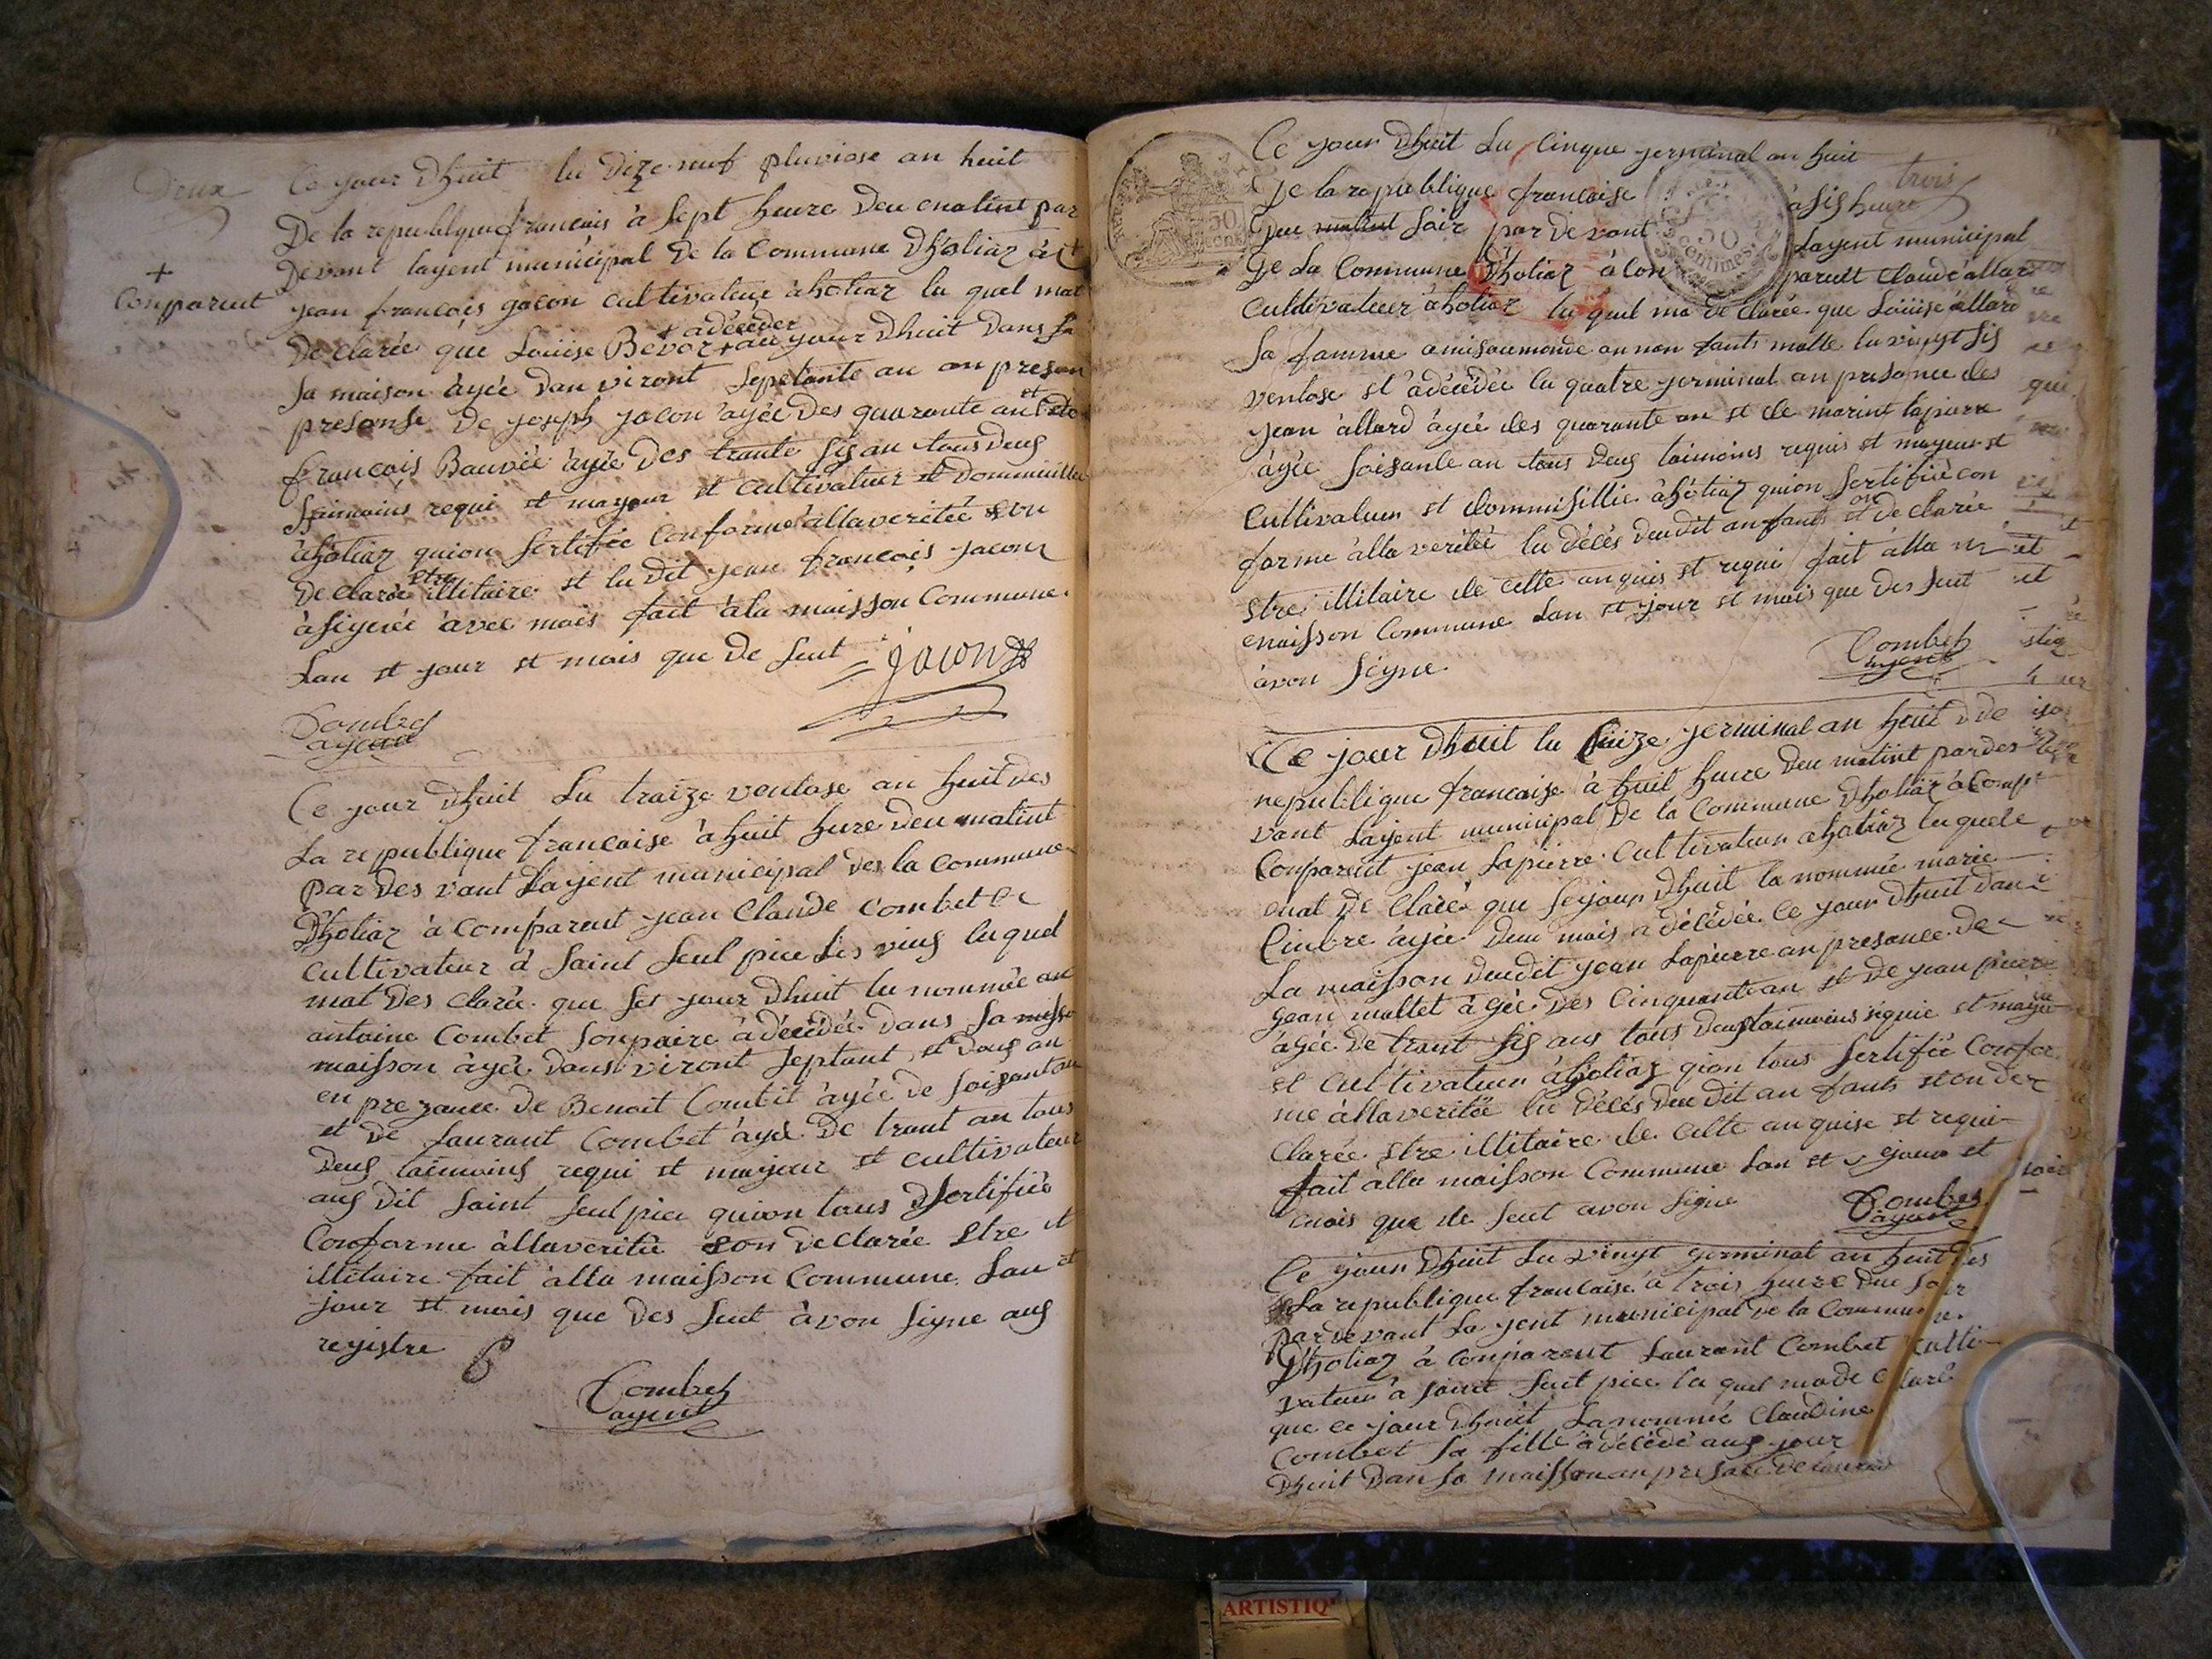 Deux
Ce jour Dhuit lu dize neuf pluviose an huit
De la republique francais à sept heure Deu matint par
Devant layent municipal De la Commune Dhotiaz à +
+
Conparut
jean francois jacon cultivateur à hotiaz lu quel mat
De clarée que Louiise Bevoz + au jour Dhuit Dans sa
+ adéceder
Sa maison àyée Dan viront Sepetante an an preson
presonse De joseph jacon àyée Des quarante an et de
francois Bauviée àyée Des trante sis an tous Deus
taimoins requi et mayeur et Cultivateur et Dommisillie
àhotiaz quion Sertifiée Conforme àllaveritée et on
De clarée etre illitaire et lu Dit jean francois jacon
àsignée àvec mois fait àla maisson Commune
Lan et jour et mois que De Seut jacon
Combet
ajent
Ce jour Dhuit Lu traize ventose an huit des
La republique francaise à huit hure Deu matint
par Des vant Layent municipal Des la Commune
Dhotiaz à Comparut jean Claude Combet
Cultivateur à Saint Seul pice Lis vius luquel
mat Des Clarée que Ses jour Dhuit lu nommée an
antoine Combet Sonpaire àdécédée Dans Sa
maisson àyée Dans viront Septant et Deus an
en prezance De Benoit Combet àyée de Soisant an
et De Laurant Combet àyée De trant an tous
Deus taimoins requi et mayeur et Cultivateur
aus Dit Saint Seul pice quion tous Sertifiée
Conforme àllaveritée et on Declarée Etre it
illitaire fait àlla maisson Commune Lan et
jour et mois que Des Seut àvon Signe aus
registre
Combet
agent
trois
Ce jour Dhuit Lu Cinque jerminal an huit
De la republique francaise à sis heure
Deu matint Soir par De vant Layent municipal
De La Commune Dhotiaz à Con parutt Claude allard
Cultivateur àhotiaz lu quel ma De clarée que Louiise allard
Sa famme amisaumonde an non fants malle lu vinyt Sis
ventose et àdécédée lu quatre jerminal an presance des
jean àllard àyée des quarante an et de marint lapierre
àyée Soisante an tous Deus taimoins requis et mayeur et
Cultivateur et dommisillie àhotiaz quion Sertifiée Con
forme àlla veritée lu Décés deudit anfants et on De clarée
Etre illitaire de cette anquis et requi fait àlla
maisson Commune Lan et jour et mois que Des Seut
àvon Signe
Combet
ajent
Ce jour Dhuit lu Seize jerminal an huit De
republique francaise à huit hure Deu matint pardes
vant Layent municipal De la Commune Dhotiaz à Comp
Conparut jean Lapierre Cultivateur ahotiaz luquele
mat De Claée que Sejour Dhuit la nommée marie
Cinbre àyée Deu mois a décédée Ce jour Dhuit dan
La maisson Deudit jean Lapierre an presance De
jean mallet à yée Des Cinquante an et De jean pierre
ayée De trant Sis ans tous Deus taimoins requie et mayeu
et Cultivateur àhotiaz qion tous Sertifiée Confor
me àllaveritée lu Décés Deu Dit an fants et on De
Clarée Etre illitaire de Cette anquise et requi
fait àlla maisson Commune Lan et jour et
mois que de Seut avon Signe
Combet
ajent
Ce jour Dhuit Lu vinyt jerminal an huit Des
La republique francaise à trois hure Deu Soir
par devant La yent municipal De la Commune
Dhotiaz à Conparut Laurant Combet Culti
vateur à Saint Seut pice lu quel ma de Claré
que ce jour Dhuit La nommée Claudine
Combet Sa fille à décédé aus jour
Dhuit Dan Sa maisson an presance De
ARTISTIQ